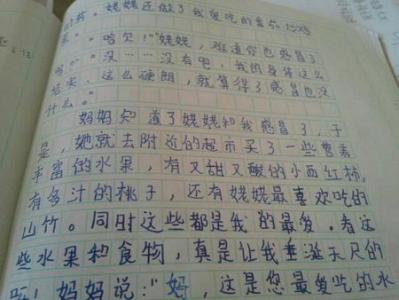 姥姥还做了我爱吃的
"哈欠!"姥姥,难道你也感冒了
吗?"没……没有吧,我的身体这么
结实,这么硬朗,就算得了感冒也没
什么。"
妈妈知道了姥姥和我感冒了,于
是,她就去附近的超市买了一些营养
丰富的水果,有又甜又酸的小西红柿,
有多汁的桃子,还有姥姥最喜欢吃的
山竹。同时这些都是我的最爱。看这
些水果和食物,真是让我垂涎三尺的
妈妈说:"妈,这是您最爱吃的水